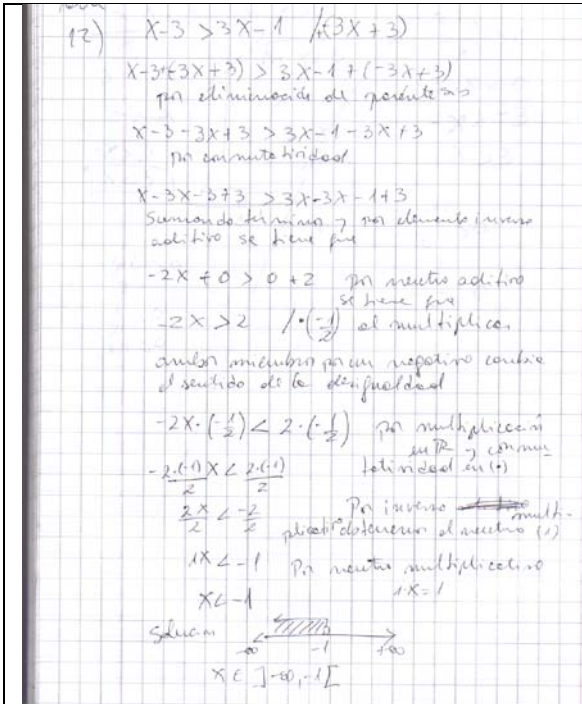 12) x-3 > 3x-1 /+(-3x+3)
x-3+(-3x+3) > 3x-1+(-3x+3)
por eliminación de paréntesis
x-3-3x+3 > 3x-1-3x+3
por conmutatividad
x-3x-3+3 > 3x-3x-1+3
Sumando términos y por elemento inverso
aditivo se tiene que
-2x+0 > 0+2 por neutro aditivo
se tiene que
-2x > 2 /·(-1/2) al multiplicar
ambos miembros por un negativo cambia
el sentido de la desigualdad
-2x·(-1/2) < 2·(-1/2) por multiplicación
en R y conmu
tatividad en (·)
-2·(-1)/2 x < 2·(-1)/2
2x/2 < -2/2 Por inverso multi-
plicativo obtenemos el neutro (1)
1x < -1 Por neutro multiplicativo
1·x=1
x < -1
Solución
-∞ -1 +∞
x ∈ ]-∞,-1[